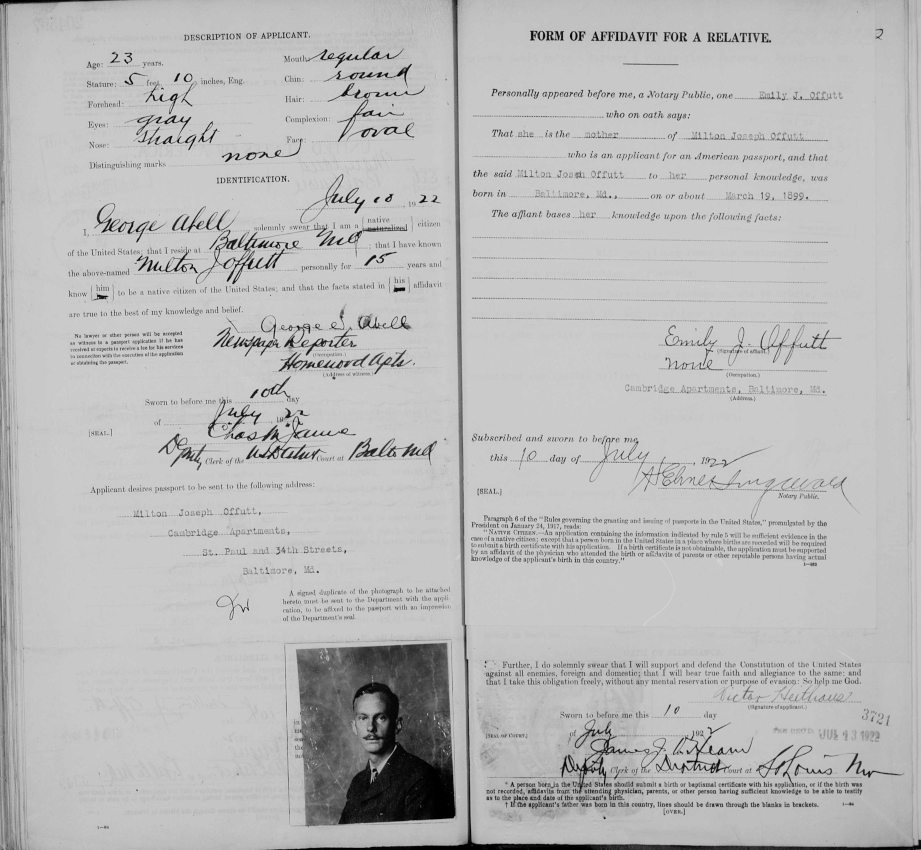 DESCRIPTION OF APPLICANT.
Age: 23 years.
Mouth: regular
Stature: 5 feet, 10 inches, Eng.
Chin: round
Forehead: high
Hair: brown
Eyes: gray
Complexion: fair
Nose: straight
Face: oval
Distinguishing marks none
IDENTIFICATION.
July 10, 1922
I, George Abell solemnly swear that I am a [native naturalized] citizen
of the United States; that I reside at Baltimore Md; that I have known
the above-named Milton J Offutt personally for 15 years and
know [him her] to be a native citizen of the United States; and that the facts stated in [his her] affidavit
are true to the best of my knowledge and belief.
No lawyer or other person will be accepted
as witness to a passport application if he has
received or expects to receive a fee for his services
in connection with the execution of the application
or obtaining the passport.
George Abell
Newspaper Reporter
(Occupation.)
Homewood Apts.
(Address of witness.)
Sworn to before me this 10th day
of July 1922
[SEAL.]
Chas
Deputy Clerk of the U.S. District Court at Balto Md
Applicant desires passport to be sent to the following address:
Milton Joseph Offutt,
Cambridge Apartments,
St. Paul and 34th Streets,
Baltimore, Md.
A signed duplicate of the photograph to be attached
hereto must be sent to the Department with the appli-
cation, to be affixed to the passport with an impression
of the Department's seal.
FORM OF AFFIDAVIT FOR A RELATIVE.
2
Personally appeared before me, a Notary Public, one Emily J. Offutt
who on oath says:
That she is the mother of Milton Joseph Offutt
who is an applicant for an American passport, and that
the said Milton Joseph Offutt to her personal knowledge, was
born in Baltimore, Md., on or about March 19, 1899.
The affiant bases her knowledge upon the following facts:
Emily J. Offutt
(Signature of affiant.)
none
(Occupation.)
Cambridge Apartments, Baltimore, Md.
(Address.)
Subscribed and sworn to before me
this 10 day of July, 1922
[SEAL.]
Notary Public.
Paragraph 6 of the "Rules governing the granting and issuing of passports in the United States," promulgated by the
President on January 24, 1917, reads:
"NATIVE CITIZEN.—An application containing the information indicated by rule 5 will be sufficient evidence in the
case of a native citizen; except that a person born in the United States in a place where births are recorded will be required
to submit a birth certificate with his application. If a birth certificate is not obtainable, the application must be supported
by an affidavit of the physician who attended the birth or affidavits of parents or other reputable persons having actual
knowledge of the applicant's birth in this country."
Further, I do solemnly swear that I will support and defend the Constitution of the United States
against all enemies, foreign and domestic; that I will bear true faith and allegiance to the same; and
that I take this obligation freely, without any mental reservation or purpose of evasion: So help me God.
Victor
(Signature of applicant.)
Sworn to before me this 10 day
3721
[SEAL OF COURT.]
of July, 1922
JUL 13 1922
James J.
Deputy Clerk of the District Court at St Louis Mo
* A person born in the United States should submit a birth or baptismal certificate with his application, or if the birth
was not recorded, affidavits from the attending physician, parents, or other person having sufficient knowledge to be able to testify
as to the place and date of the applicant's birth.
† If the applicant's father was born in this country, lines should be drawn through the blanks in brackets.
[OVER.]